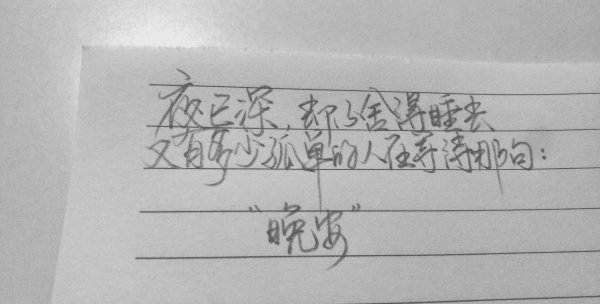 夜已深,却不舍得睡去
又有多少孤单的人在等待那句:
"晚安"